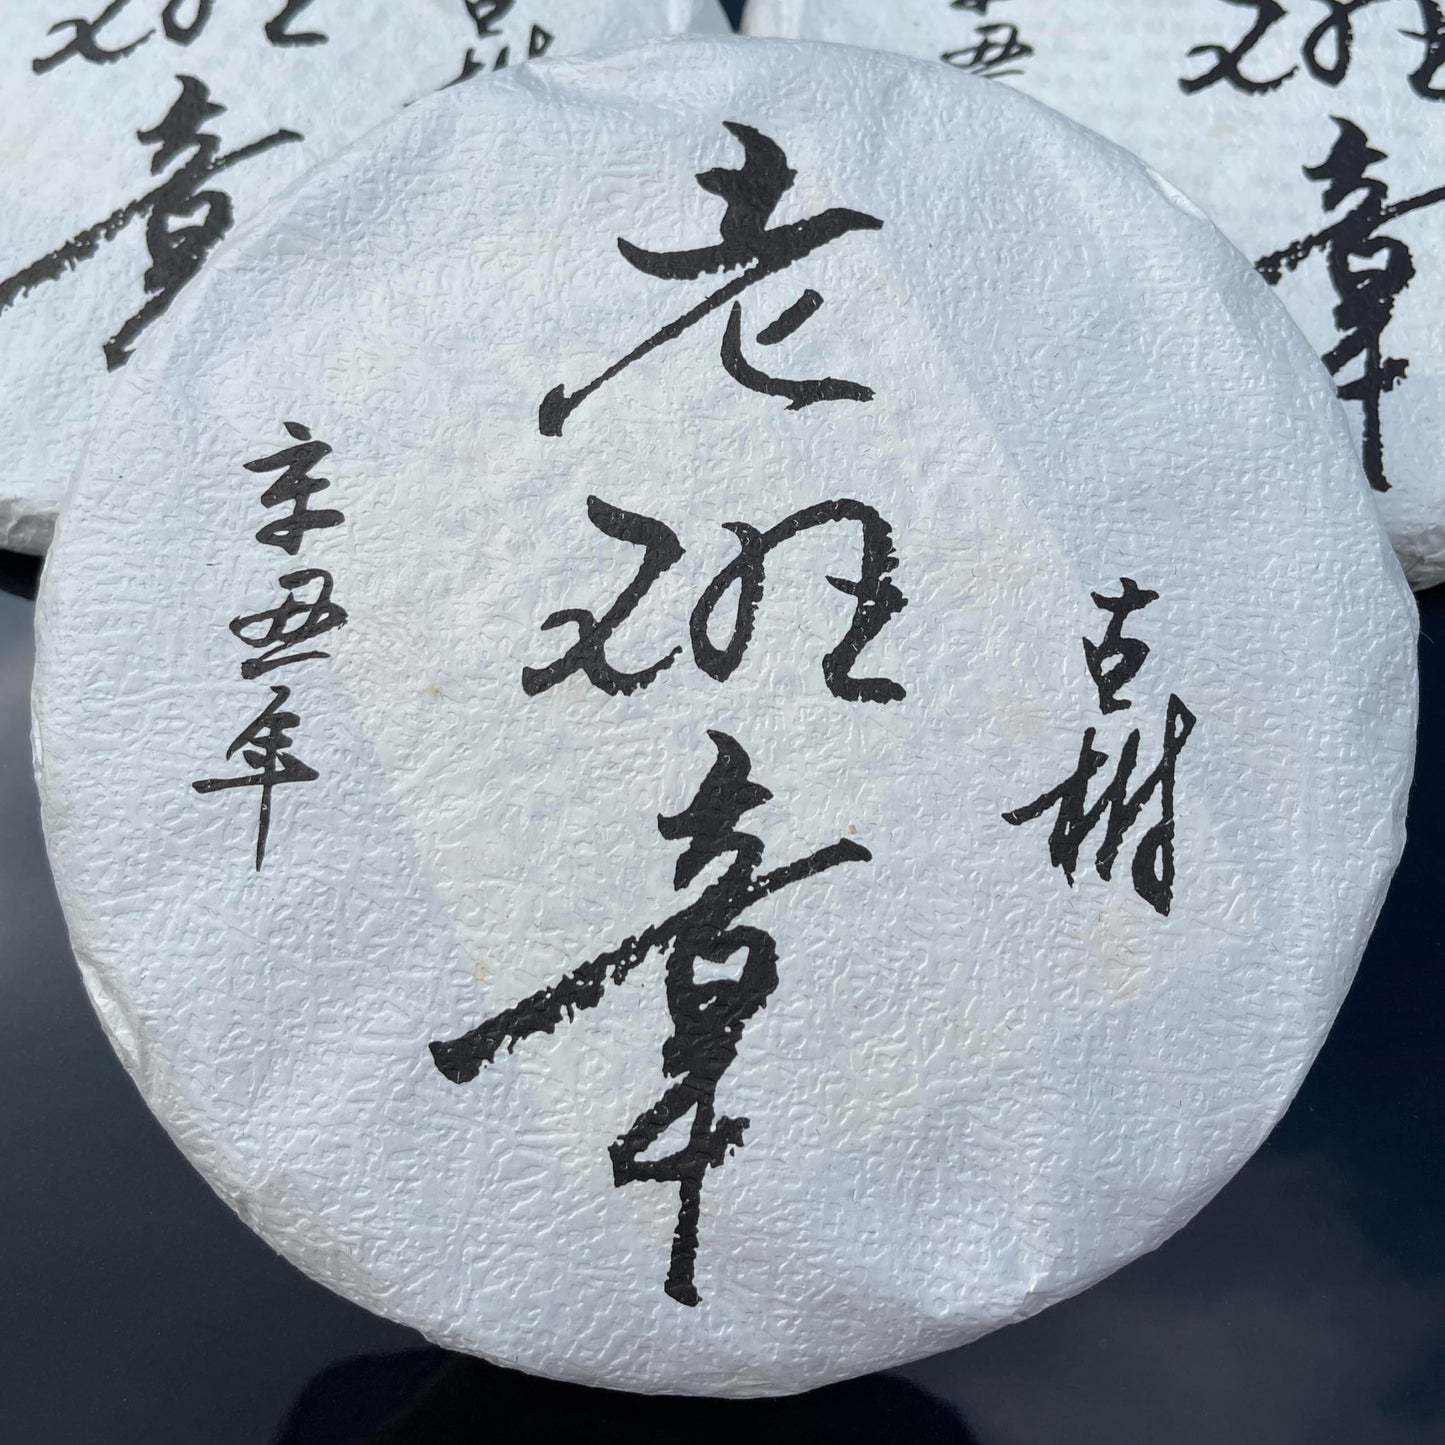 古树
老班章
辛丑年
章
丑
班
章